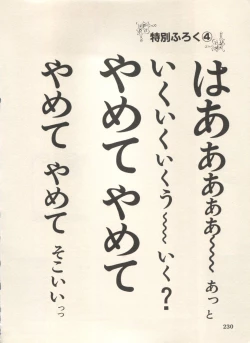 特別ふろく④
はあぁぁぁぁ〜〜 あっと
いくいくいくう〜〜 いく?
やめて やめて
やめて やめて そこいいっっ
230